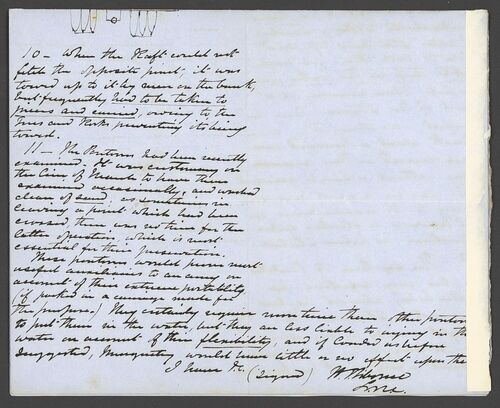 10 — When the Raft could not
fetch the opposite point; it was
towed up to it by men on the bank,
but frequently had to be taken to
pieces and carried, owing to the
trees and Rocks preventing its being
towed.
11 — The Pontoons had been recently
examined. It was customary on
the line of March to have them
examined occasionally, and washed
clean of sand; as sometimes in
leaving a point which had been
crossed there was no time for the
latter operation, which is most
essential for their preservation.
These pontoons would prove most
useful auxiliaries to an army on
account of their extreme portability
(if packed in a carriage made for
the purpose.) They certainly require more time than other pontoons
to put them in the water, but they are less liable to injury in the
water on account of their flexibility, and if covered as before
suggested, Musquetry would have little or no effect upon them
I have &c. (Signed)